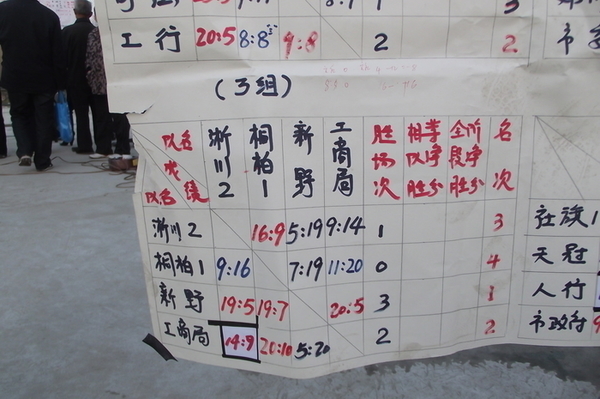 工行 20:5 8:8 9:8 2 2
(3组)
队名 战绩 队名 淅川2 桐柏1 新野 工商局 胜场次 相等队净胜分 全阶段净胜分 名次
淅川2 16:9 5:19 9:14 1 3
桐柏1 9:16 7:19 11:20 0 4
新野 19:5 19:7 20:5 3 1
工商局 14:9 20:10 5:20 2 2
社旗1
天冠
人行
市政府